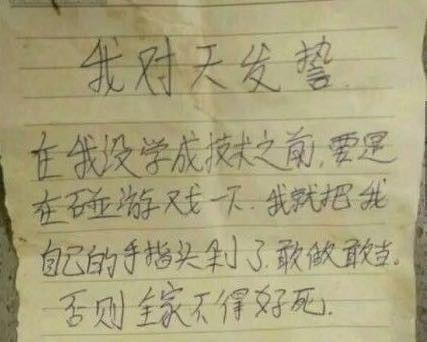 我对天发誓.
在我没学成技术之前,要是
在碰游戏一下.我就把我
自己的手指头剁了.敢做敢当.
否则全家不得好死.